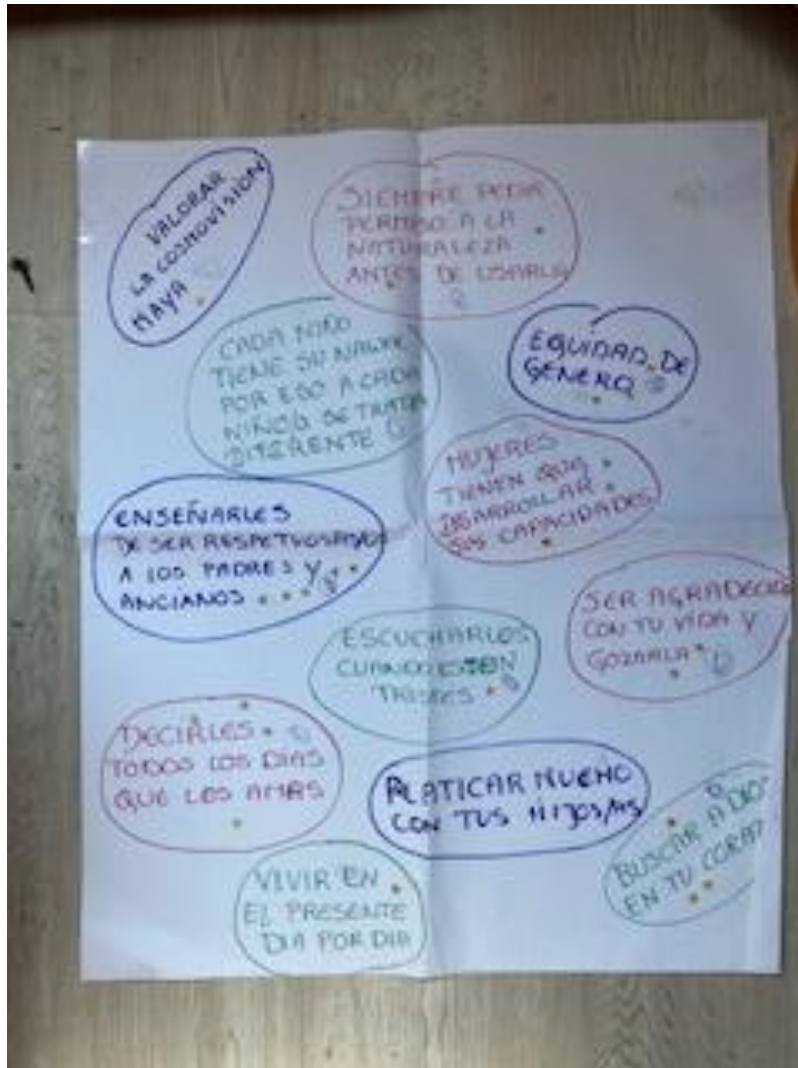 VALORAR
LA COSMOVISIÓN
MAYA
SIEMPRE PEDIR
PERMISO A LA
NATURALEZA
ANTES DE USARLA
CADA NIÑO
TIENE SU NAWAL
POR ESO A CADA
NIÑO/A SE TRATA
DIFERENTE
EQUIDAD DE
GENERO
MUJERES
TIENEN QUE
DESARROLLAR
SUS CAPACIDADES
ENSEÑARLES
DE SER RESPETUOSAS/OS
A LOS PADRES Y
ANCIANOS
SER AGRADECIDO
CON TU VIDA Y
GOZARLA
ESCUCHARLOS
CUANDO ESTEN
TRISTES
DECIRLES
TODOS LOS DIAS
QUE LOS AMAS
PLATICAR MUCHO
CON TUS HIJOS/AS
BUSCAR A DIO
EN TU CORAZ
VIVIR EN
EL PRESENTE
DIA POR DIA